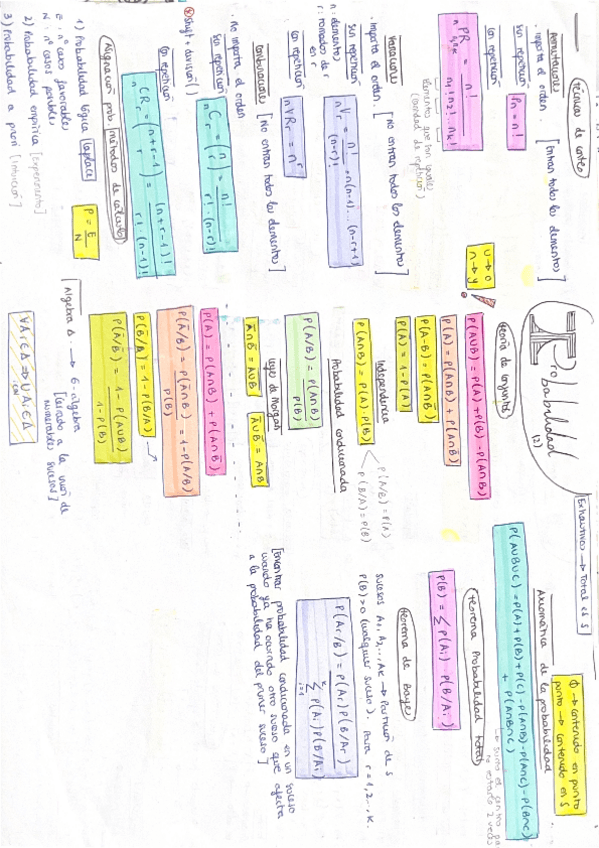 técnicas de conteo
Permutaciones [Entran todos los elementos]
· Importa el orden.
sin repetición Pn = n!
con repetición
PR = n! / n₁! n₂! ... nₖ!
elementos que son iguales
(cantidad de repetición)
Variaciones [No entran todos los elementos]
· Importa el orden.
sin repetición
n: elementos
r: tomados de r en r
nVr = n! / (n-r)! = n(n-1)...(n-r+1)
con repetición nVRr = nʳ
Combinaciones [No entran todos los elementos]
· No importa el orden
sin repetición
nCr = (n r) = n! / r!·(n-r)!
shift + división(:)
con repetición
nCRr = (n+r-1 r) = (n+r-1)! / r!·(n-1)!
Asignación prob. [métodos de cálculo]
1) Probabilidad lógica [Laplace]
E: nº casos favorables
N: nº casos posibles
P = E/N
2) Probabilidad empírica [experimento]
3) Probabilidad a priori [intuición]
U → O
n → y
Probabilidad
(2)
teoría de conjuntos
P(AUB) = P(A) + P(B) - P(A∩B)
P(A) = P(A∩B) + P(A∩B̅)
P(A-B) = P(A∩B̅)
P(A̅) = 1 - P(A)
Independencia
P(A∩B) = P(A)·P(B)
P(A/B) = P(A)
P(B/A) = P(B)
Probabilidad condicionada
P(A/B) = P(A∩B) / P(B)
Leyes de Morgan
A̅∩B̅ = AUB A̅UB̅ = A∩B
P(A) = P(A∩B) + P(A∩B̅)
P(A̅/B) = P(A̅∩B) / P(B) = 1 - P(A/B)
P(B̅/A) = 1 - P(B/A)
P(A̅/B̅) = 1 - P(AUB) / 1 - P(B)
Algebra Δ → σ-algebra
[cerrado a la unión de
numerables sucesos]
∀Aᵢ ∈ Δ ⇒ U Aᵢ ∈ Δ
Exhaustivos → Total es S
Φ → contenido en punto
punto → contenido en S
Axiomática de la probabilidad
P(AUBUC) = P(A) + P(B) + P(C) - P(A∩B) - P(A∩C) - P(B∩C)
+ P(A∩B∩C)
2 veces
teorema Probabilidad total
P(B) = Σ P(Aᵢ) · P(B/Aᵢ)
teorema de Bayes
sucesos A₁, A₂, ... Aₖ → Partición de S
P(B) > 0 (cualquier suceso). Para r = 1, 2 ... k.
P(Aᵣ/B) = P(Aᵣ) P(B/Aᵣ) / Σ P(Aᵢ) P(B/Aᵢ)
[Encontrar probabilidad condicionada en un suceso
cuando ya ha ocurrido otro suceso que afecta
a la probabilidad del primer suceso]